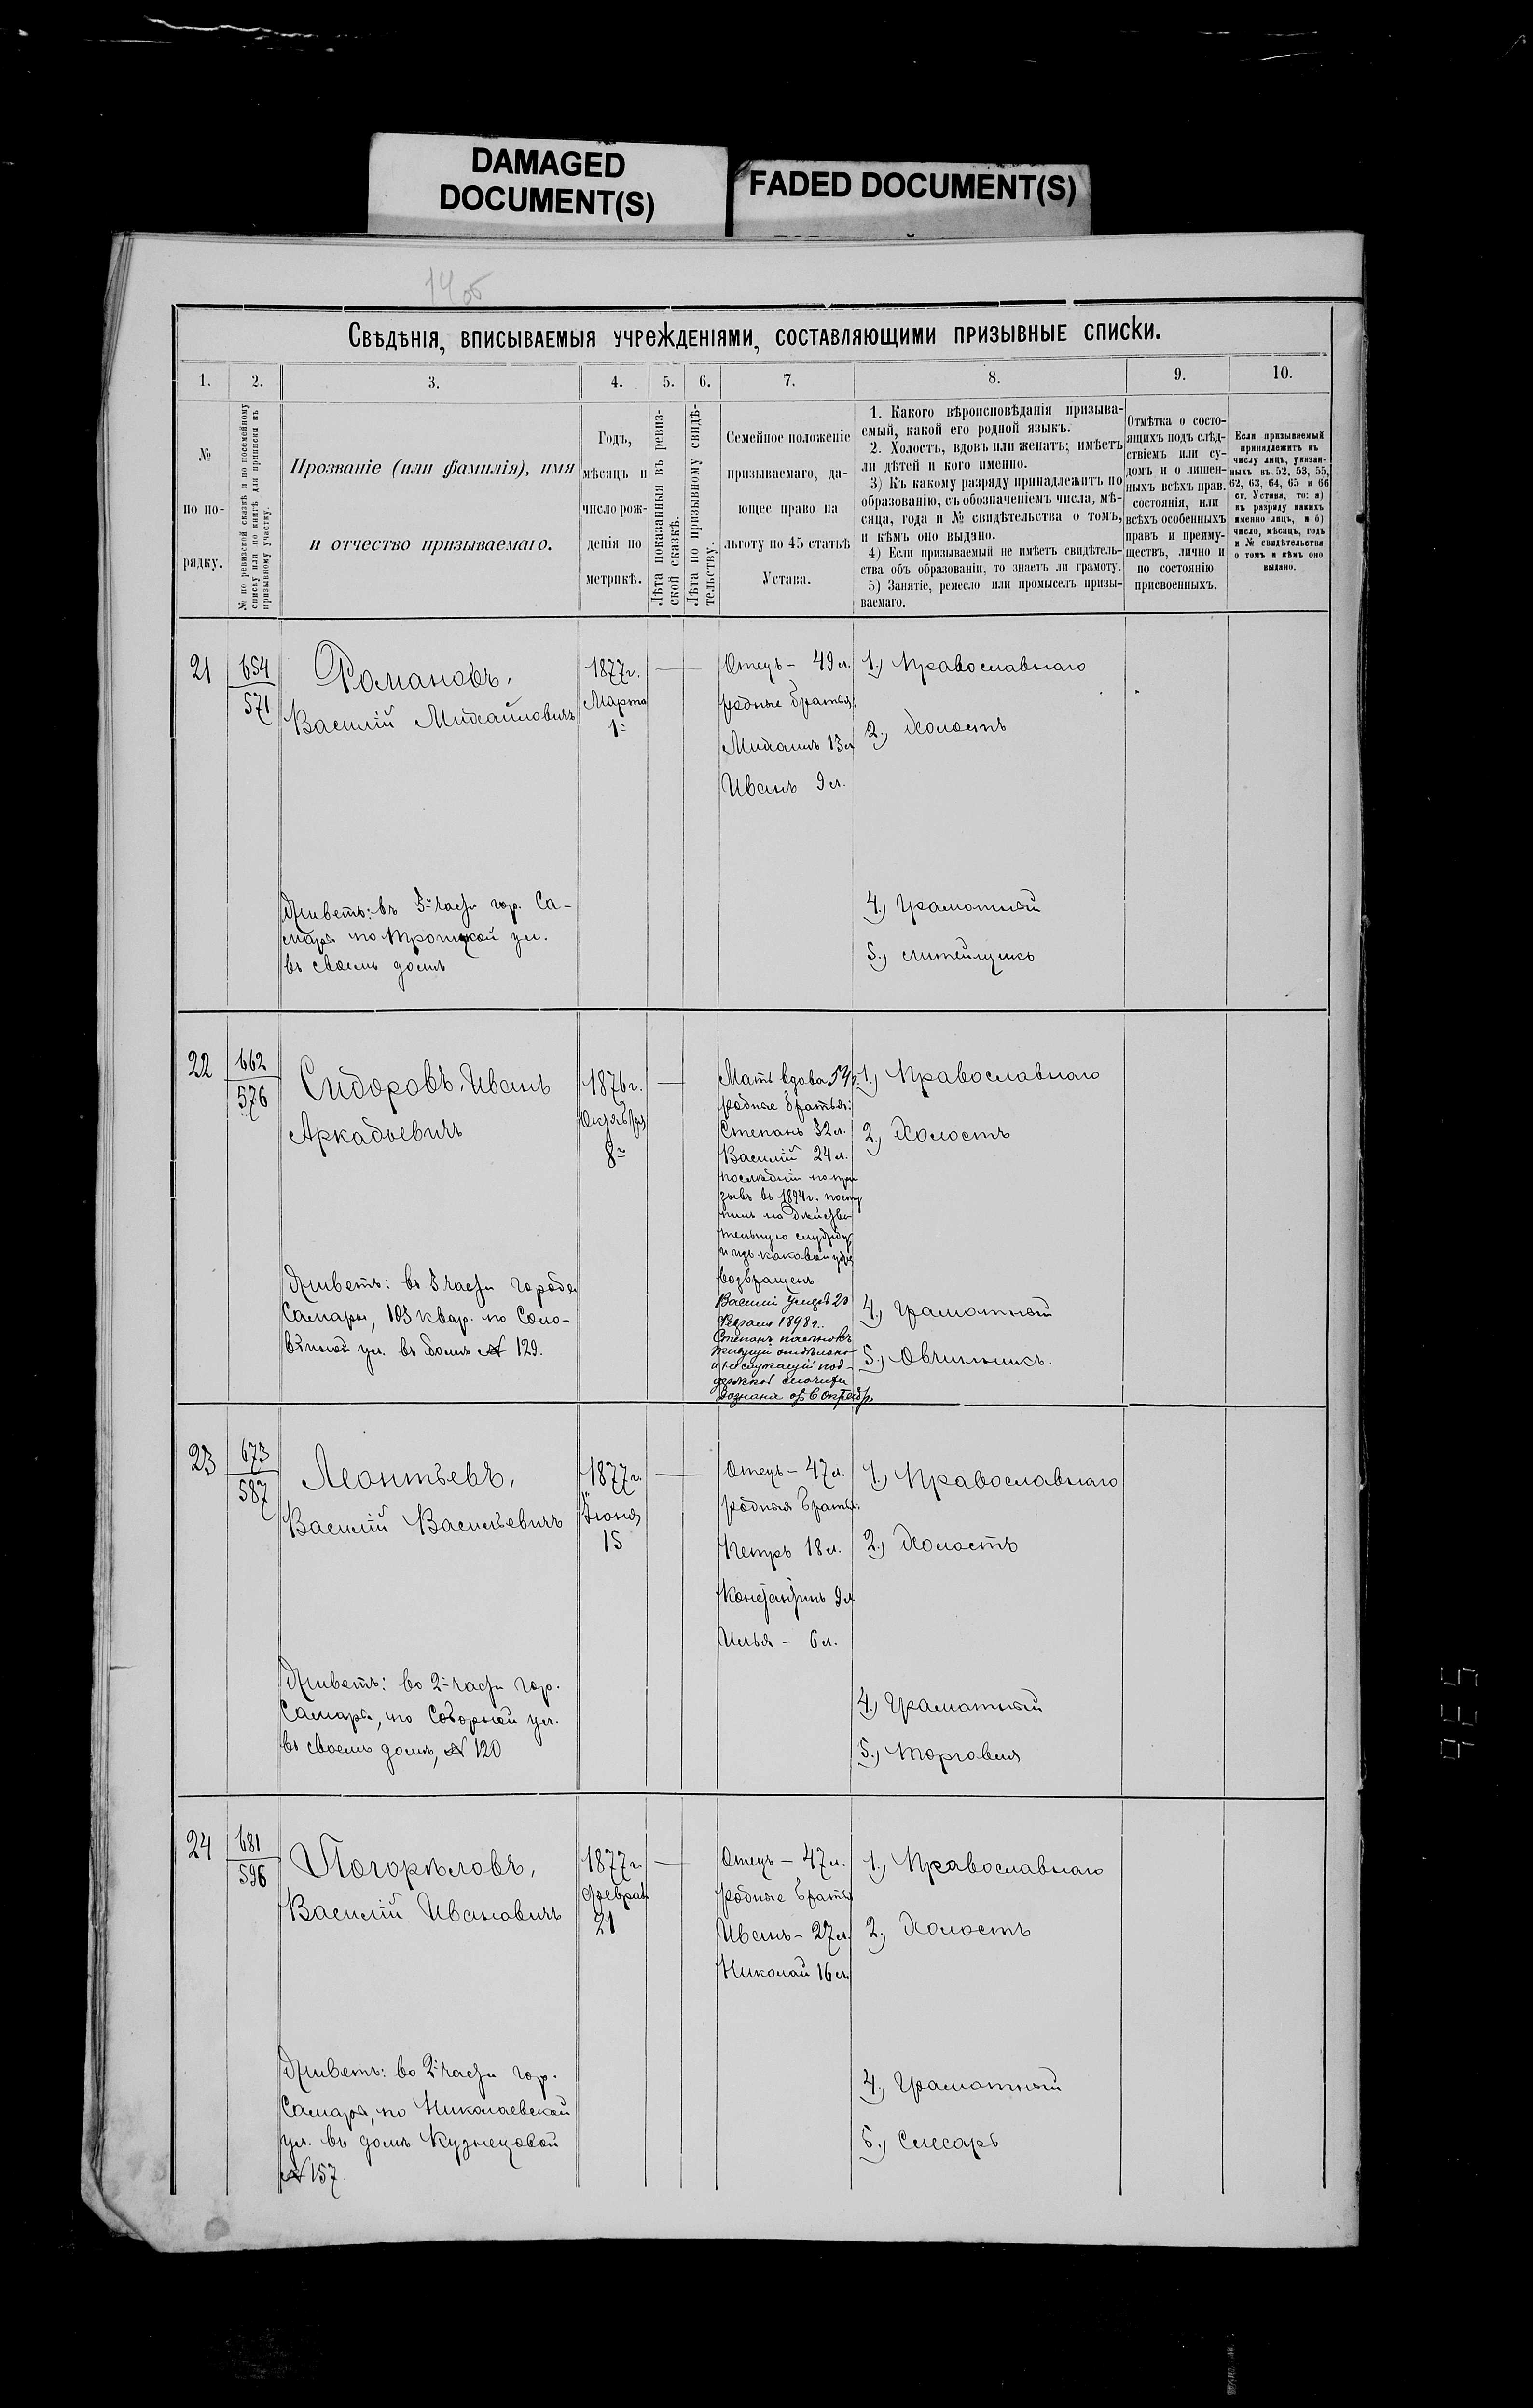 DAMAGED
DOCUMENT(S)
FADED DOCUMENT(S)
14об
Свѣдѣнія, вписываемыя учрежденіями, составляющими призывные списки.
1.
2.
3.
4.
5.
6.
7.
8.
9.
10.
№
по по-
рядку.
№ по ревизской сказкѣ и по посемейному
списку или по книгѣ для приписки къ
призывному участку.
Прозваніе (или фамилія), имя
и отчество призываемаго.
Годъ,
мѣсяцъ и
число рож-
денія по
метрикѣ.
Лѣта показанныя въ ревиз-
ской сказкѣ.
Лѣта по призывному свидѣ-
тельству.
Семейное положеніе
призываемаго, да-
ющее право на
льготу по 45 статьѣ
Устава.
1. Какого вѣроисповѣданія призыва-
емый, какой его родной языкъ.
2. Холостъ, вдовъ или женатъ; имѣетъ
ли дѣтей и кого именно.
3) Къ какому разряду принадлежитъ по
образованію, съ обозначеніемъ числа, мѣ-
сяца, года и № свидѣтельства о томъ,
и кѣмъ оно выдано.
4) Если призываемый не имѣетъ свидѣтель-
ства объ образованіи, то знаетъ ли грамоту.
5) Занятіе, ремесло или промыселъ призы-
ваемаго.
Отмѣтка о состо-
ящихъ подъ слѣд-
ствіемъ или су-
домъ и о лишен-
ныхъ всѣхъ прав.
состоянія, или
всѣхъ особенныхъ
правъ и преиму-
ществъ, лично и
по состоянію
присвоенныхъ.
Если призываемый
принадлежитъ къ
числу лицъ, указан-
ныхъ въ 52, 53, 55,
62, 63, 64, 65 и 66
ст. Устава, то: а)
къ разряду какихъ
именно лицъ, и б)
число, мѣсяцъ, годъ
и № свидѣтельства
о томъ и кѣмъ оно
выдано.
21
654
571
Романовъ,
Василій Михайловичъ
Живетъ: въ 3й части гор. Са-
мары по Троицкой ул.
въ своемъ домѣ
1877г.
Марта
1
Отецъ – 49 л.
родные братья:
Михаилъ 13 л
Иванъ 9 л.
1.) Православнаго
2.) Холостъ
4.) Грамотный
5.) литейщикъ
22
662
576
Сидоровъ, Иванъ
Аркадьевичъ
Живетъ: въ 3 части города
Самары, 103 квар. по Соло-
вьиной ул. въ домѣ № 129.
1876г.
Октября
8
Мать вдова 54 г.
родные братья:
Степанъ 32 л.
Василій 24 л.
послѣдній по при
зыву въ 1894г. посту
пилъ на дѣйстви
тельную службу
и изъ каковой уже
возвращенъ
Василій умеръ 20
Февраля 1898 г.
Степанъ
живущій отдѣльно
и не служащій под-
держкой
6 Октябр.
1.) Православнаго
2.) Холостъ
4.) Грамотный
5.) Овчинникъ.
23
673
587
Леонтьевъ,
Василій Васильевичъ
Живетъ: во 2й части гор.
Самары, по Соборной ул.
въ своемъ домѣ, № 120
1877г.
Іюня
15
Отецъ – 47 л.
родныя братья:
Петръ 18 л.
Константинъ 9 л
Илья – 6 л.
1.) Православнаго
2.) Холостъ
4.) Грамотный
5.) Торговля
24
681
596
Погорѣловъ,
Василій Ивановичъ
Живетъ: во 2й части гор.
Самары, по Николаевской
ул. въ домѣ Кузнецовой
№ 157.
1877г.
Феврал
21
Отецъ – 47 л.
родные братья
Иванъ – 27 л.
Николай 16 л.
1.) Православнаго
2.) Холостъ
4.) Грамотный
5.) Слесарь
536